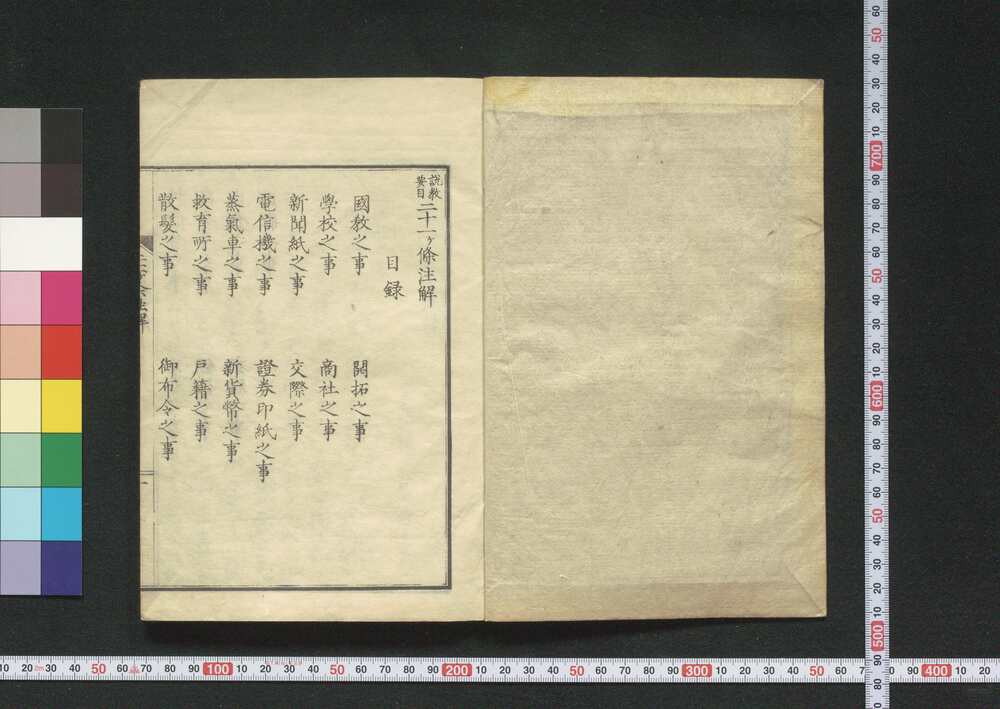 説教要目二十一ヶ條注解
目録
國教之事
開拓之事
學校之事
商社之事
新聞紙之事
交際之事
電信機之事
證券印紙之事
蒸氣車之事
新貨幣之事
救育所之事
戸籍之事
散髮之事
御布令之事